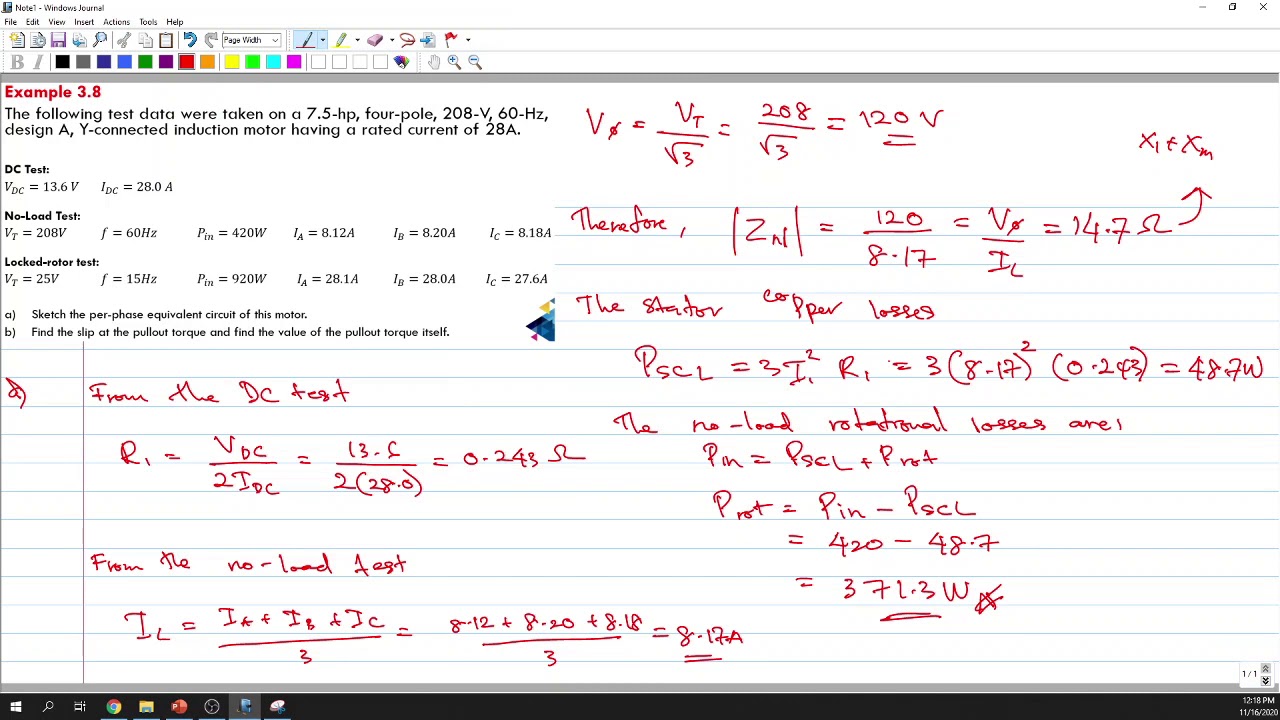 Note1 - Windows Journal
File Edit View Insert Actions Tools Help
Page Width
B I
Example 3.8
The following test data were taken on a 7.5-hp, four-pole, 208-V, 60-Hz,
design A, Y-connected induction motor having a rated current of 28A.
DC Test:
V_DC = 13.6 V I_DC = 28.0 A
No-Load Test:
V_T = 208V f = 60Hz P_in = 420W I_A = 8.12A I_B = 8.20A I_C = 8.18A
Locked-rotor test:
V_T = 25V f = 15Hz P_in = 920W I_A = 28.1A I_B = 28.0A I_C = 27.6A
a) Sketch the per-phase equivalent circuit of this motor.
b) Find the slip at the pullout torque and find the value of the pullout torque itself.
a) From the DC test
R_1 = V_DC / 2I_DC = 13.6 / 2(28.0) = 0.243 Ω
From the no-load test
I_L = (I_A + I_B + I_C) / 3 = (8.12 + 8.20 + 8.18) / 3 = 8.17A
V_ø = V_T / √3 = 208 / √3 = 120 V
X_1 + X_m
Therefore, |Z_nl| = 120 / 8.17 = V_ø / I_L = 14.7 Ω
The stator copper losses
P_SCL = 3I_1^2 R_1 = 3(8.17)^2 (0.243) = 48.7W
The no-load rotational losses are:
P_in = P_SCL + P_rot
P_rot = P_in - P_SCL
= 420 - 48.7
= 371.3 W
1/1
12:18 PM
11/16/2020